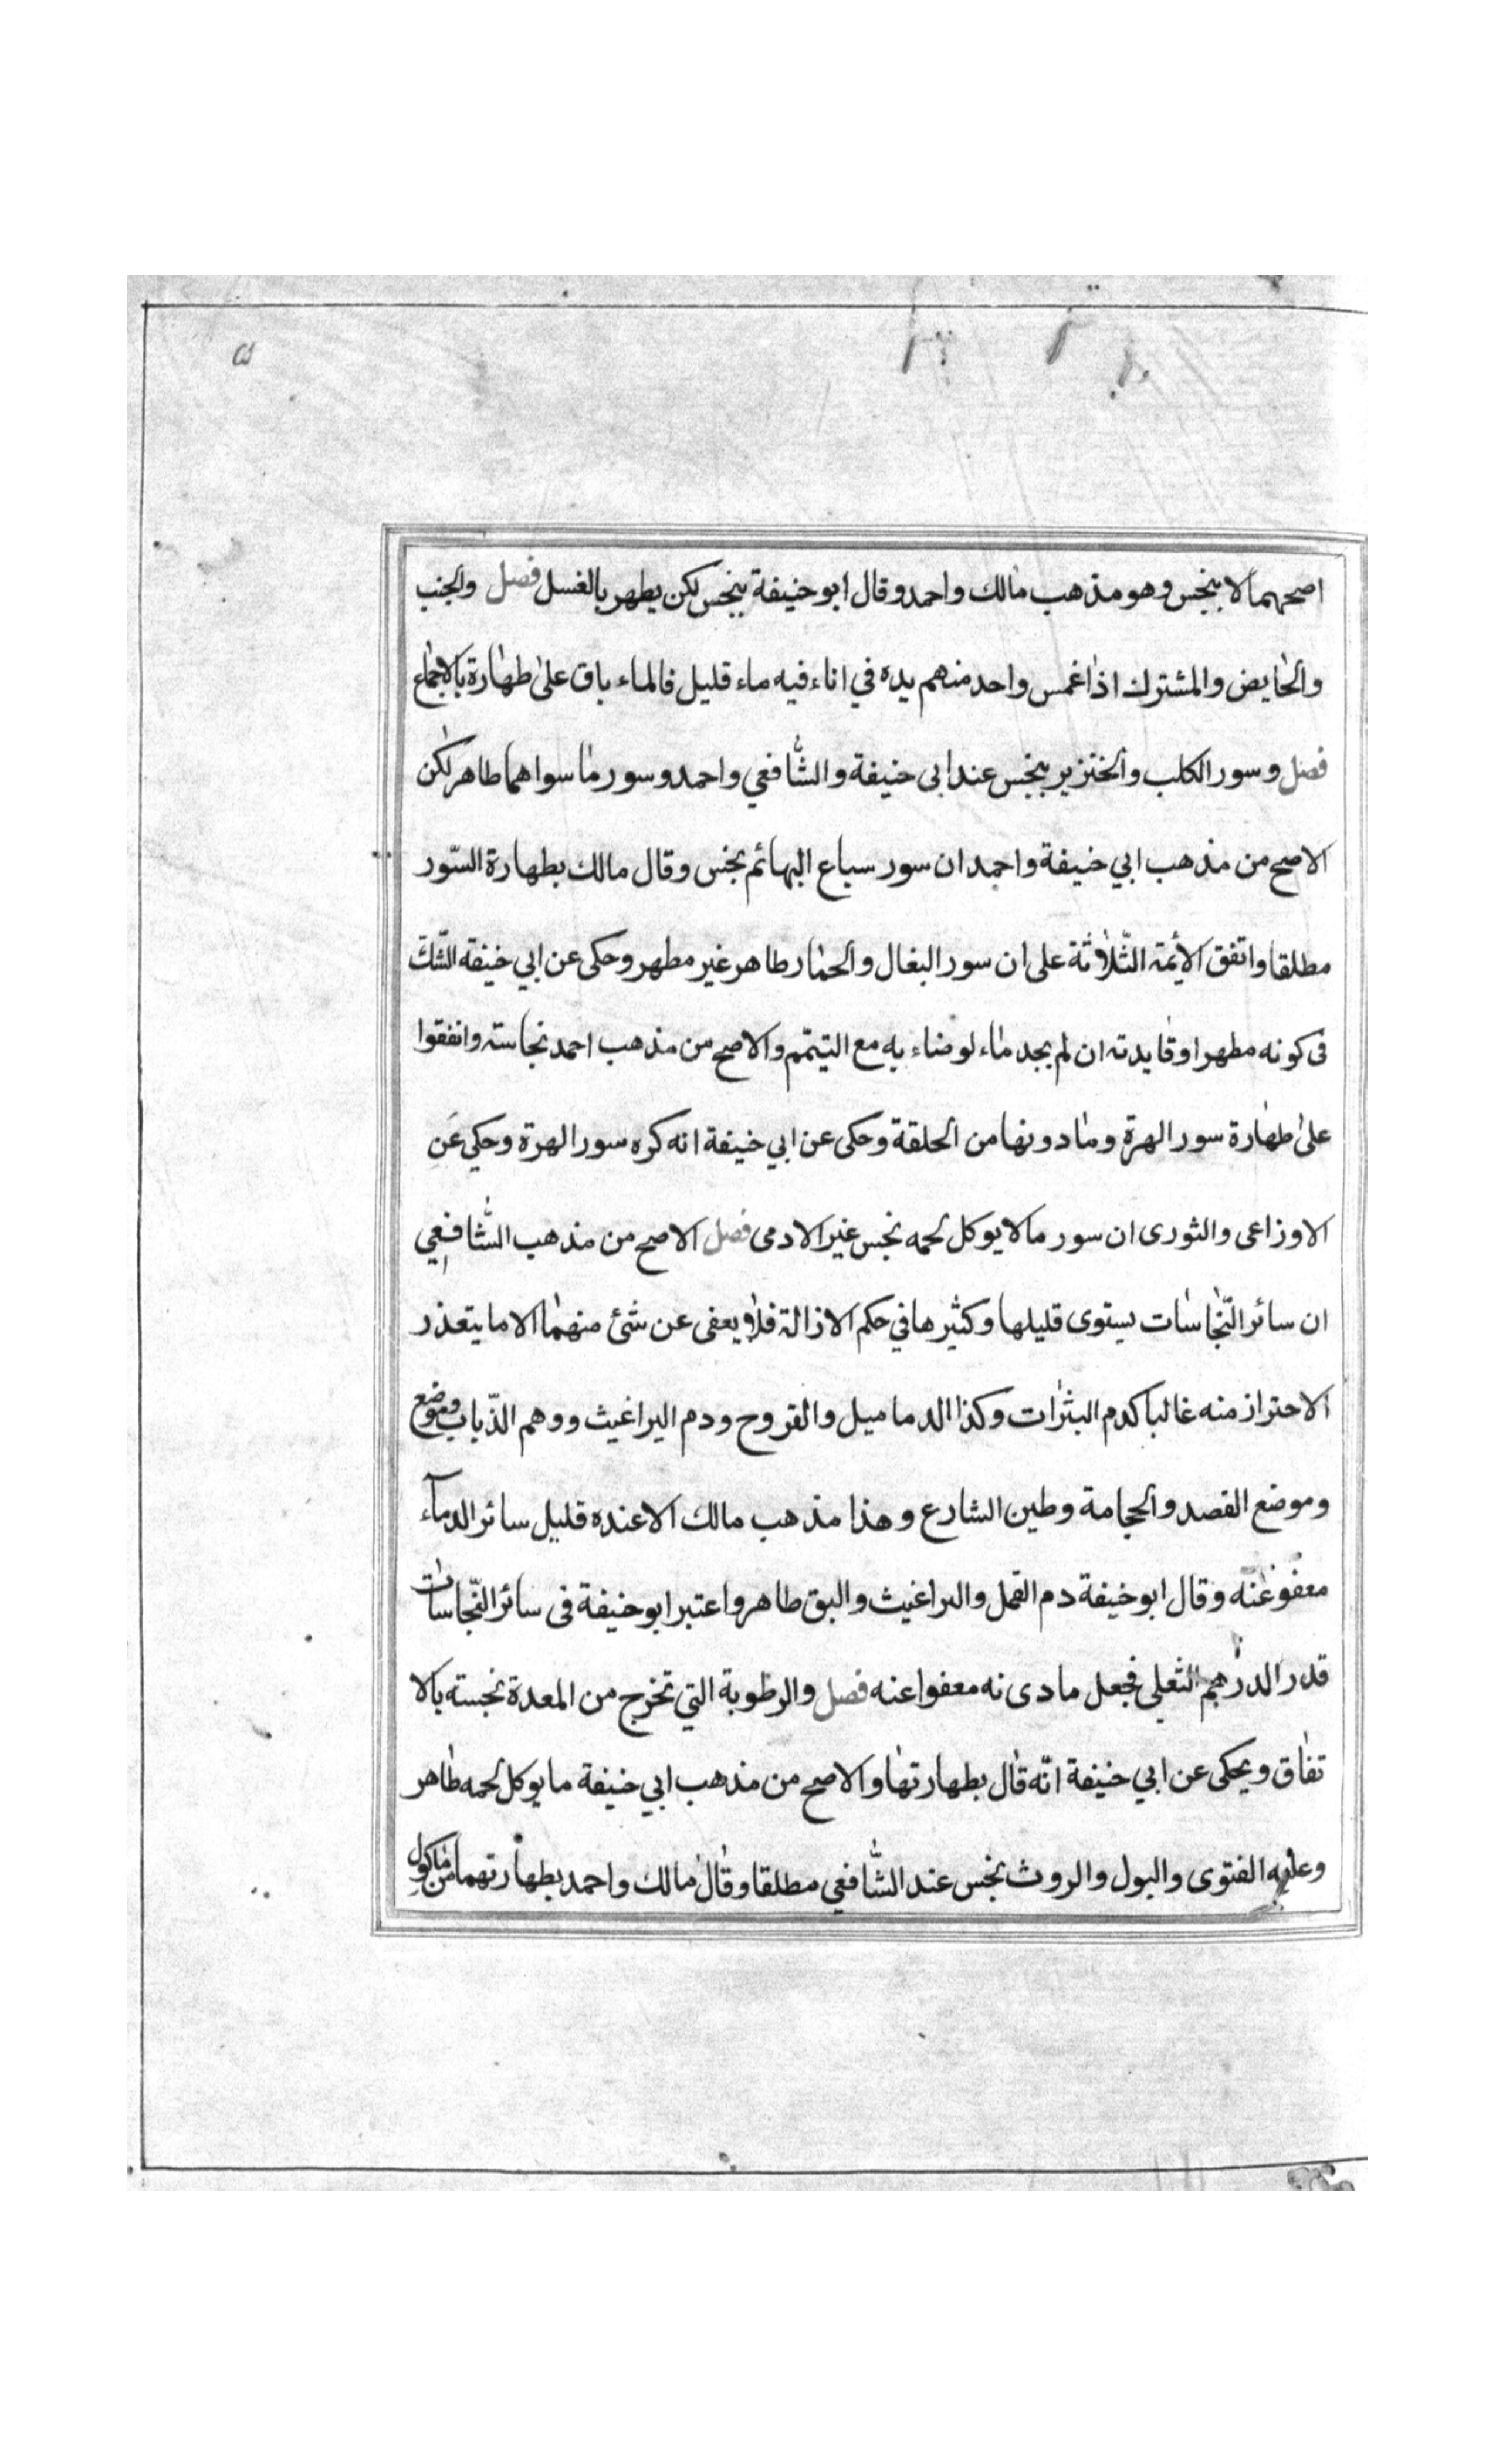 ۵
اصحهما لا ينجس وهو مذهب مالك واحمد وقال ابو حنيفة ينجس لكن يطهر بالغسل فصل والجنب
والحايض والمشترك اذا غمس واحد منهم يده في اناء فيه ماء قليل فالماء باق على طهارة بالاجماع
فصل وسور الكلب والخنزير ينجس عند ابى حنيفة والشافعي واحمد وسور ما سواهما طاهر لكن
الاصح من مذهب ابي حنيفة واحمد ان سور سباع البهائم نجس وقال مالك بطهارة السّور
مطلقا واتفق الأئمة الثّلاثة على ان سور البغال والحمار طاهر غير مطهر وحكى عن ابي حنيفة الشّك
فى كونه مطهرا وفايدته ان لم يجد ماء لوضاء به مع التيتمم والاصح من مذهب احمد نجاسته واتفقوا
على طهارة سور الهرة وما دونها من الحلقة وحكى عن ابي حنيفة انه كره سور الهرة وحكي عَنِ
الاوزاعى والثورى ان سور ما لا يوكل لحمه نجس غير الادمى فصل الاصح من مذهب الشّافعِي
ان سائر النّجاسات يستوى قليلها وكثيرها في حكم الازالة فلا يعفى عن شئ منهما الا ما يتعذر
الاحتراز منه غالبا كدم البثرات وكذا الدماميل والقروح ودم البراغيث ووهم الذّباب وموضع
وموضع الفصد والحجامة وطين الشارع وهذا مذهب مالك الا عنده قليل سائر الدمآء
معفو عنه وقال ابو حنيفة دم القمل والبراغيث والبق طاهر واعتبر ابو حنيفة فى سائر النّجاسات
قدر الدرهم الثعلى فجعل ما دى نه معفوا عنه فصل والرطوبة التي تخرج من المعدة نجسته بالا
تفاق ويحكى عن ابي حنيفة انّه قال بطهارتها والاصح من مذهب ابي حنيفة ما يوكل لحمه طاهر
وعليه الفتوى والبول والروث نجس عند الشّافعي مطلقا وقال مالك واحمد بطهارتهما من ماكول